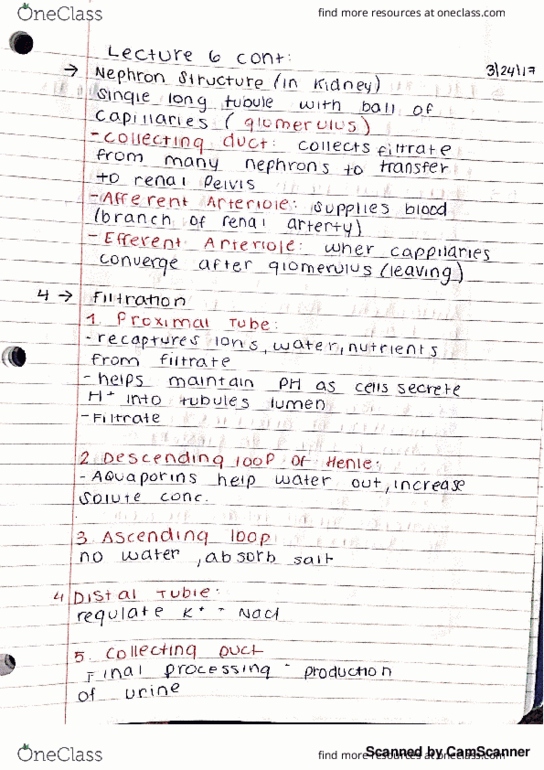 OneClass
find more resources at oneclass.com
Lecture 6 cont:
3/24/17
→ Nephron Structure (in Kidney)
single long tubule with ball of
capillaries (glomerulus)
- collecting duct: collects filtrate
from many nephrons to transfer
to renal pelvis
- Afferent Arteriole: supplies blood
(branch of renal arterty)
- Efferent Arteriole: wher cappilaries
converge after glomerulus (leaving)
4 → filtration
1. Proximal Tube:
- recaptures ions, water, nutrients
from filtrate
- helps maintain PH as cells secrete
H+ into tubules lumen
- Filtrate
2. Descending loop of Henle:
- Aquaporins help water out, increase
solute conc.
3. Ascending loop
no water, absorb salt
4 Distal Tuble:
regulate K+ - Nacl
5. Collecting Duct
Final processing - production
of urine
OneClass
find more resources at oneclass.com
Scanned by CamScanner